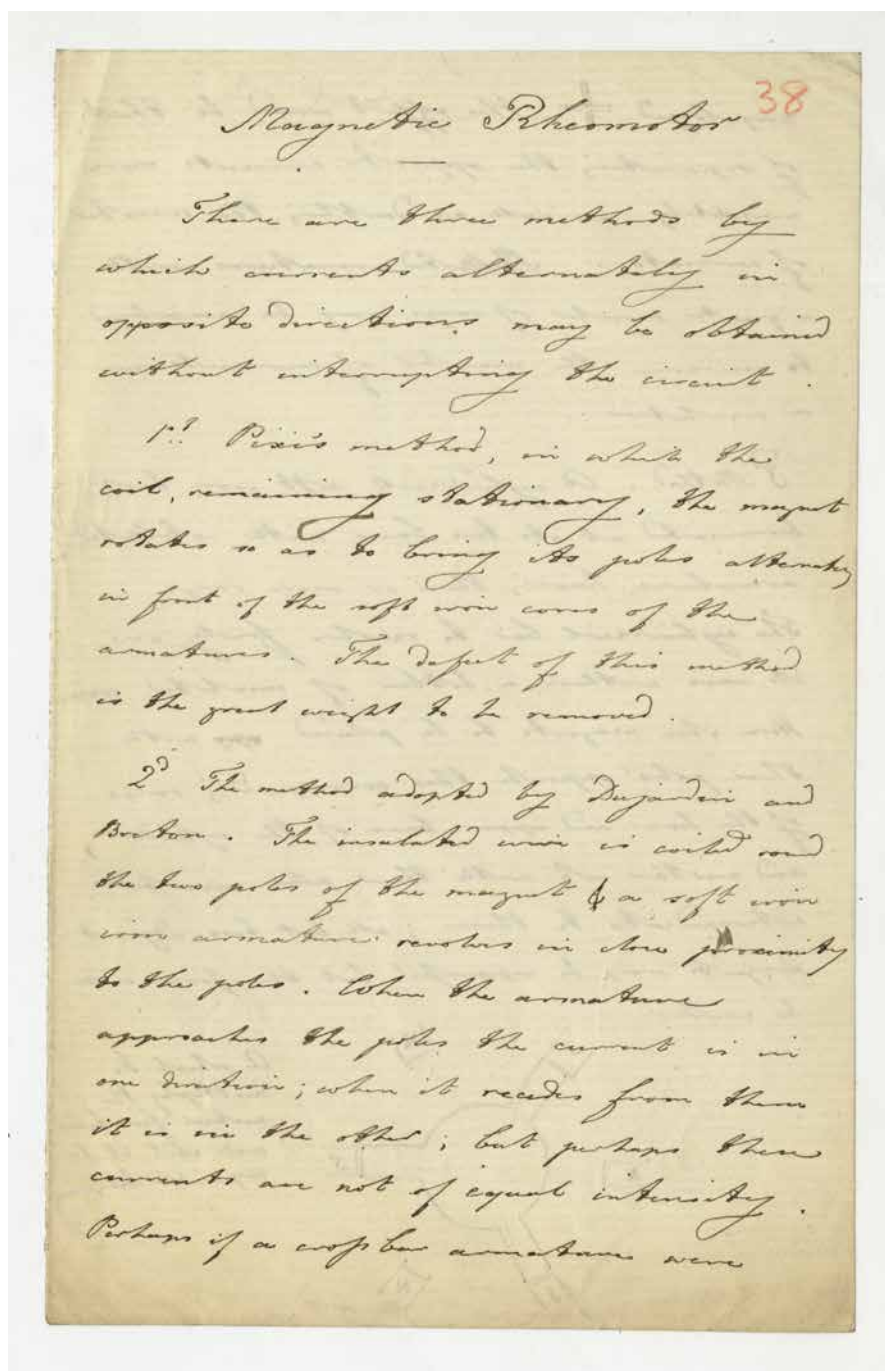 38
Magnetic Rheomotor
There are three methods by
which currents alternately in
opposite directions may be obtained
without interrupting the circuit.
1st Pixii's method, in which the
coil, remaining stationary, the magnet
rotates so as to bring its poles alternately
in front of the soft iron cores of the
armatures. The defect of this method
is the great weight to be removed.
2d The method adopted by Dujardin and
Breton. The insulated wire is coiled round
the two poles of the magnet & a soft iron
iron armature revolves in close proximity
to the poles. When the armature
approaches the poles the current is in
one direction; when it recedes from them
it is in the other; but perhaps these
currents are not of equal intensity.
Perhaps if a cross bar armature were